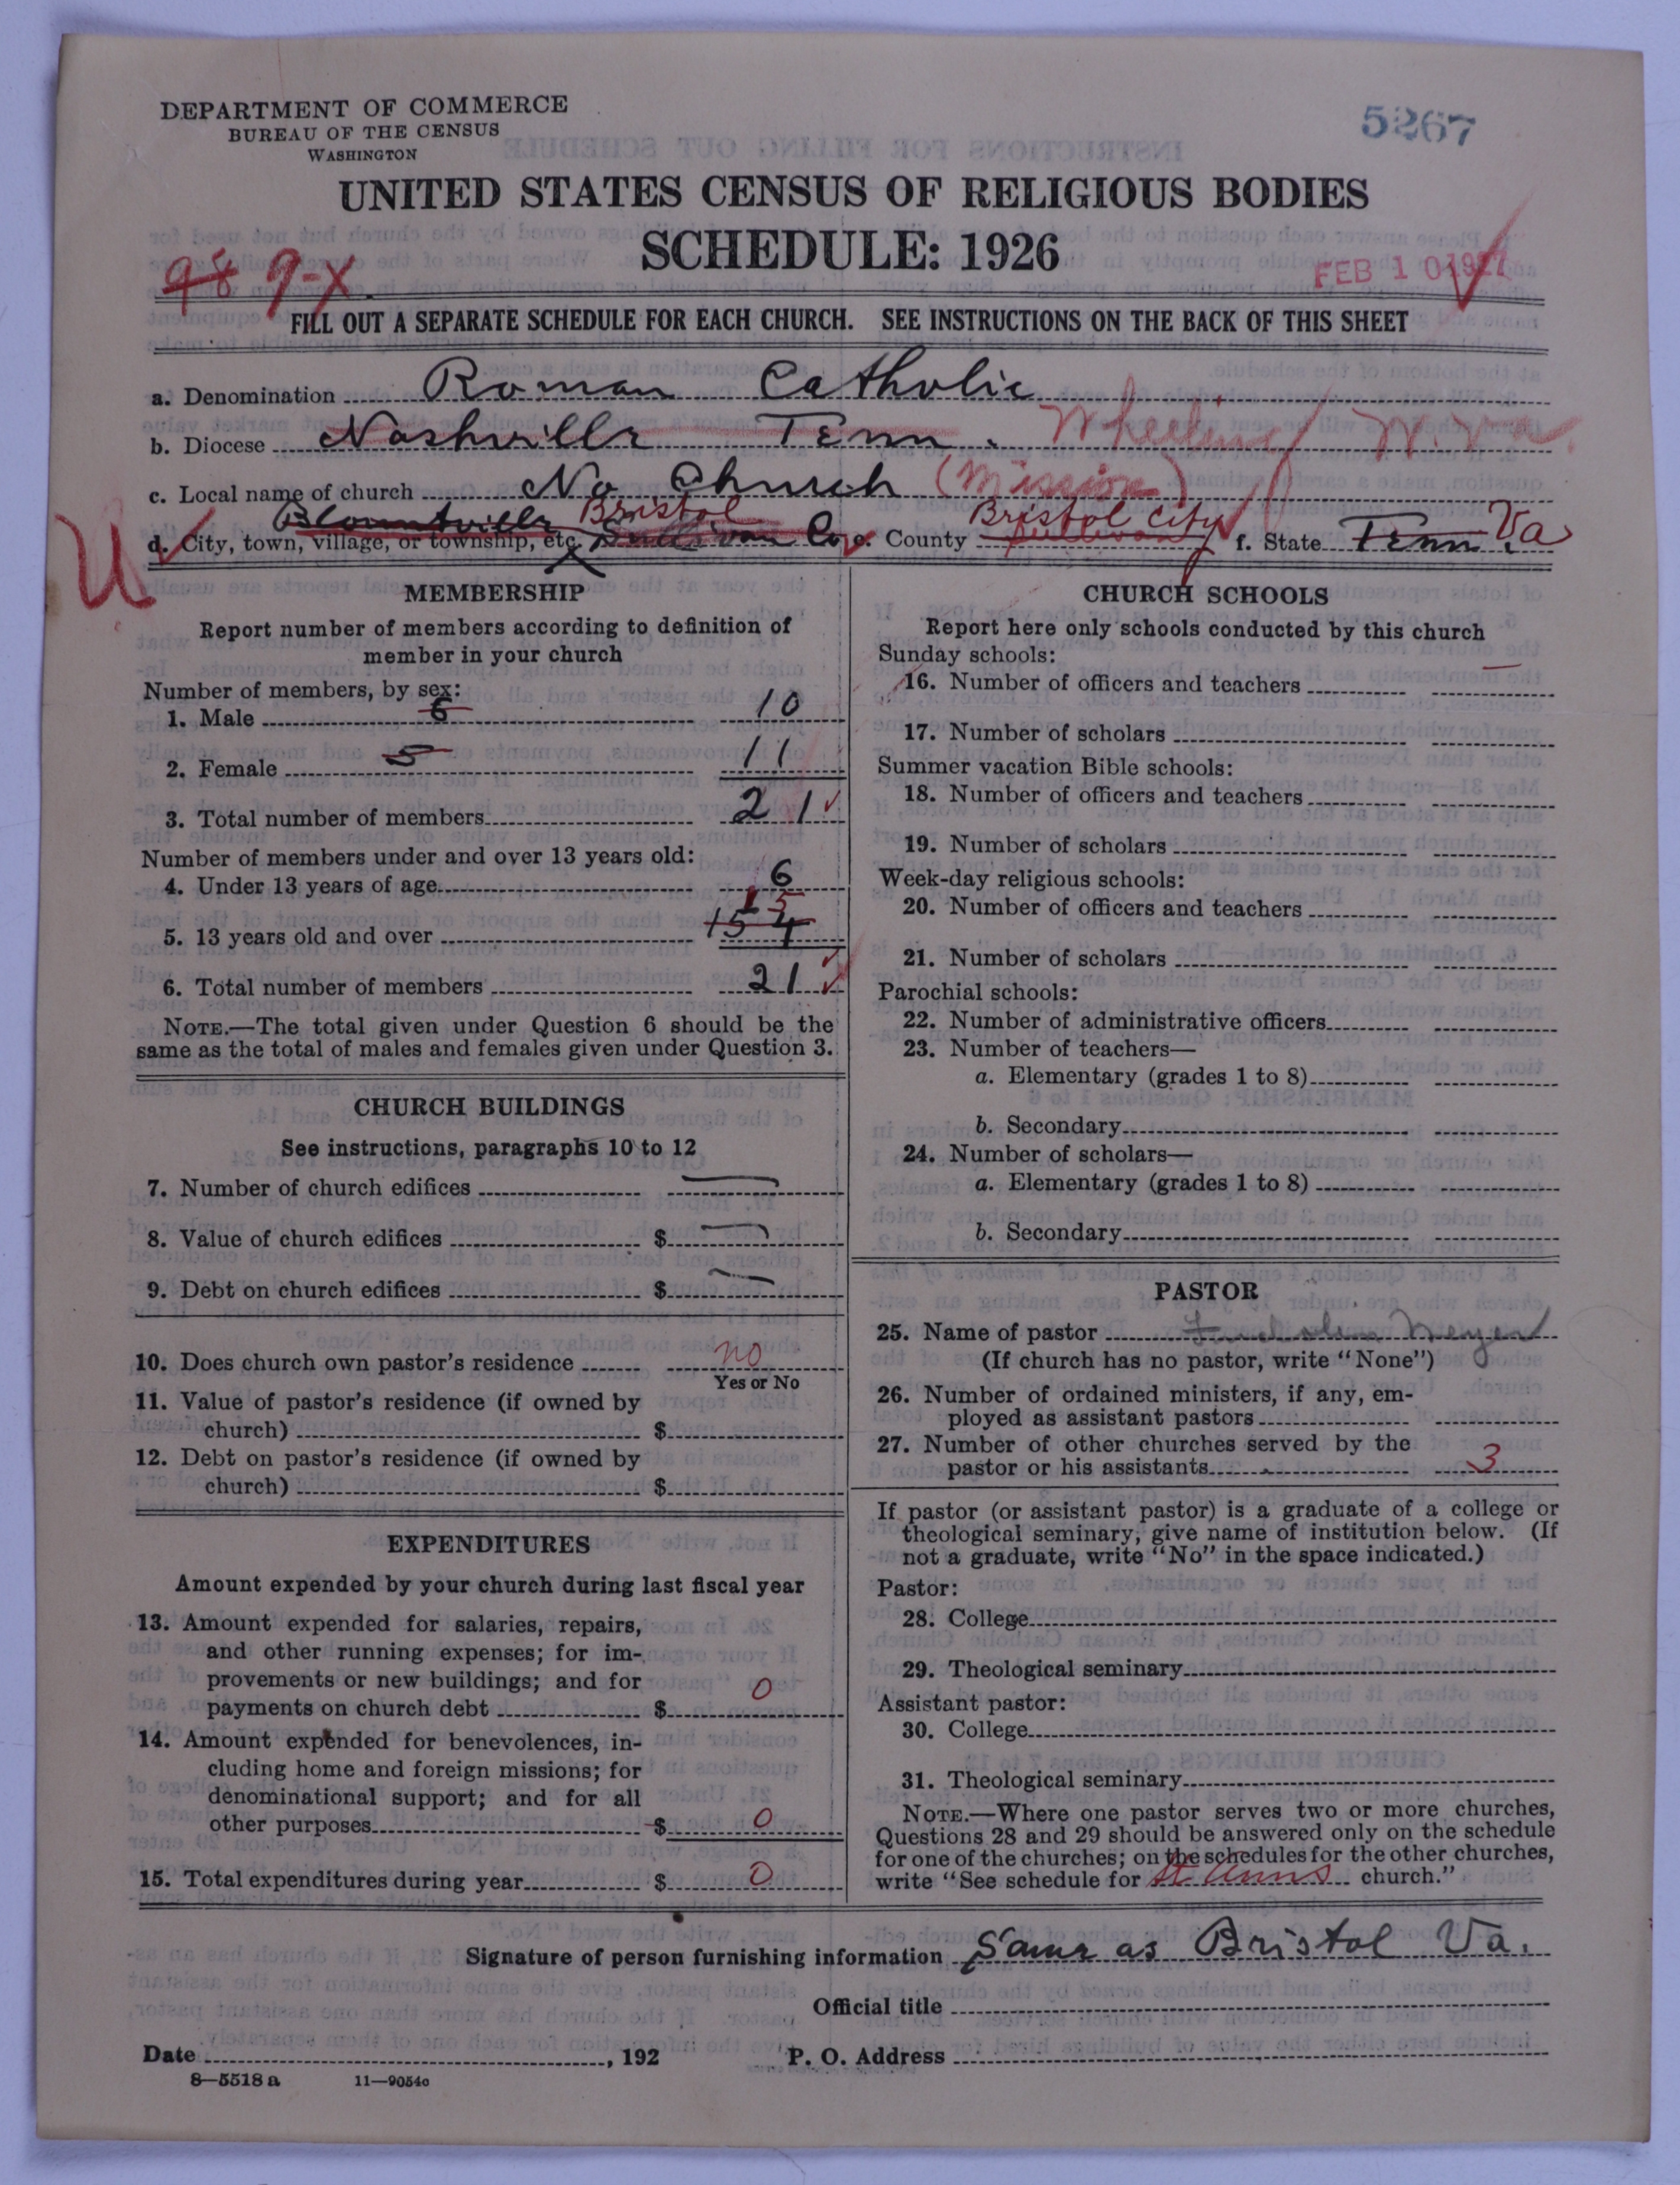 DEPARTMENT OF COMMERCE
BUREAU OF THE CENSUS
WASHINGTON
5267
UNITED STATES CENSUS OF RELIGIOUS BODIES
SCHEDULE: 1926
98 9-X
FEB 10 1927
FILL OUT A SEPARATE SCHEDULE FOR EACH CHURCH. SEE INSTRUCTIONS ON THE BACK OF THIS SHEET
a. Denomination Roman Catholic
b. Diocese Nashville Tenn. Wheeling W. Va.
c. Local name of church No Church (Mission)
Blountville Bristol Bristol City
d. City, town, village, or township, etc. Sullivan Co. e. County Sullivan f. State Tenn. Va
U
MEMBERSHIP
Report number of members according to definition of
member in your church
Number of members, by sex:
1. Male 6 10
2. Female 5 11
3. Total number of members 21
Number of members under and over 13 years old:
4. Under 13 years of age 6
15
5. 13 years old and over 15 4
6. Total number of members 21
NOTE.—The total given under Question 6 should be the
same as the total of males and females given under Question 3.
CHURCH BUILDINGS
See instructions, paragraphs 10 to 12
7. Number of church edifices —
8. Value of church edifices $ —
9. Debt on church edifices $ —
10. Does church own pastor's residence no
Yes or No
11. Value of pastor's residence (if owned by
church) $
12. Debt on pastor's residence (if owned by
church) $
EXPENDITURES
Amount expended by your church during last fiscal year
13. Amount expended for salaries, repairs,
and other running expenses; for im-
provements or new buildings; and for
payments on church debt $ 0
14. Amount expended for benevolences, in-
cluding home and foreign missions; for
denominational support; and for all
other purposes $ 0
15. Total expenditures during year $ 0
CHURCH SCHOOLS
Report here only schools conducted by this church
Sunday schools:
16. Number of officers and teachers —
17. Number of scholars
Summer vacation Bible schools:
18. Number of officers and teachers
19. Number of scholars
Week-day religious schools:
20. Number of officers and teachers
21. Number of scholars
Parochial schools:
22. Number of administrative officers
23. Number of teachers—
a. Elementary (grades 1 to 8)
b. Secondary
24. Number of scholars—
a. Elementary (grades 1 to 8)
b. Secondary
PASTOR
25. Name of pastor
(If church has no pastor, write "None")
26. Number of ordained ministers, if any, em-
ployed as assistant pastors
27. Number of other churches served by the
pastor or his assistants 3
If pastor (or assistant pastor) is a graduate of a college or
theological seminary, give name of institution below. (If
not a graduate, write "No" in the space indicated.)
Pastor:
28. College
29. Theological seminary
Assistant pastor:
30. College
31. Theological seminary
NOTE.—Where one pastor serves two or more churches,
Questions 28 and 29 should be answered only on the schedule
for one of the churches; on the schedules for the other churches,
write "See schedule for St Anns church."
Signature of person furnishing information Same as Bristol Va.
Official title
Date , 192 P. O. Address
8—5518 a 11—9054c